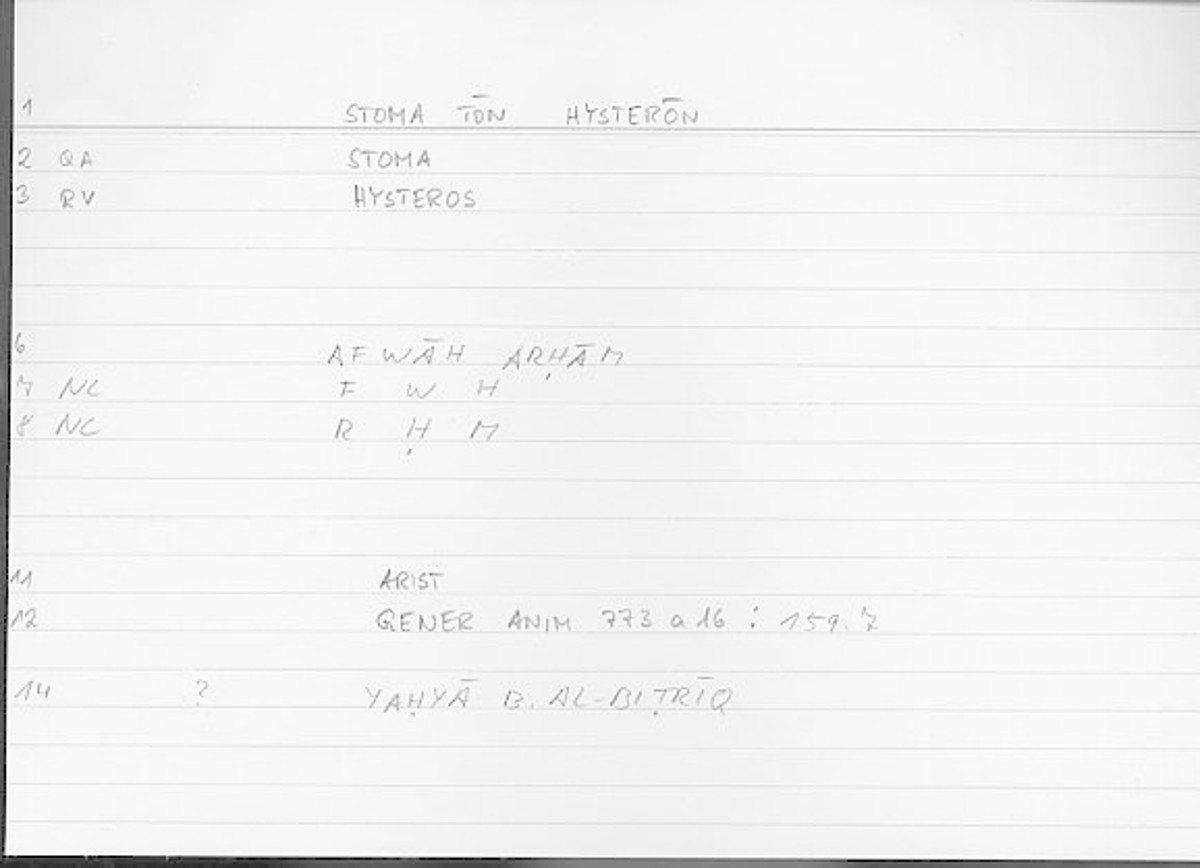 1 STOMA TŌN HYSTERŌN
2 QA STOMA
3 RV HYSTEROS
6 AFWĀH ARḤĀM
7 NC F W H
8 NC R Ḥ M
11 ARIST
12 GENER ANIM 773 a 16 : 159.7
14 ? YAḤYĀ B. AL-BIṬRĪQ